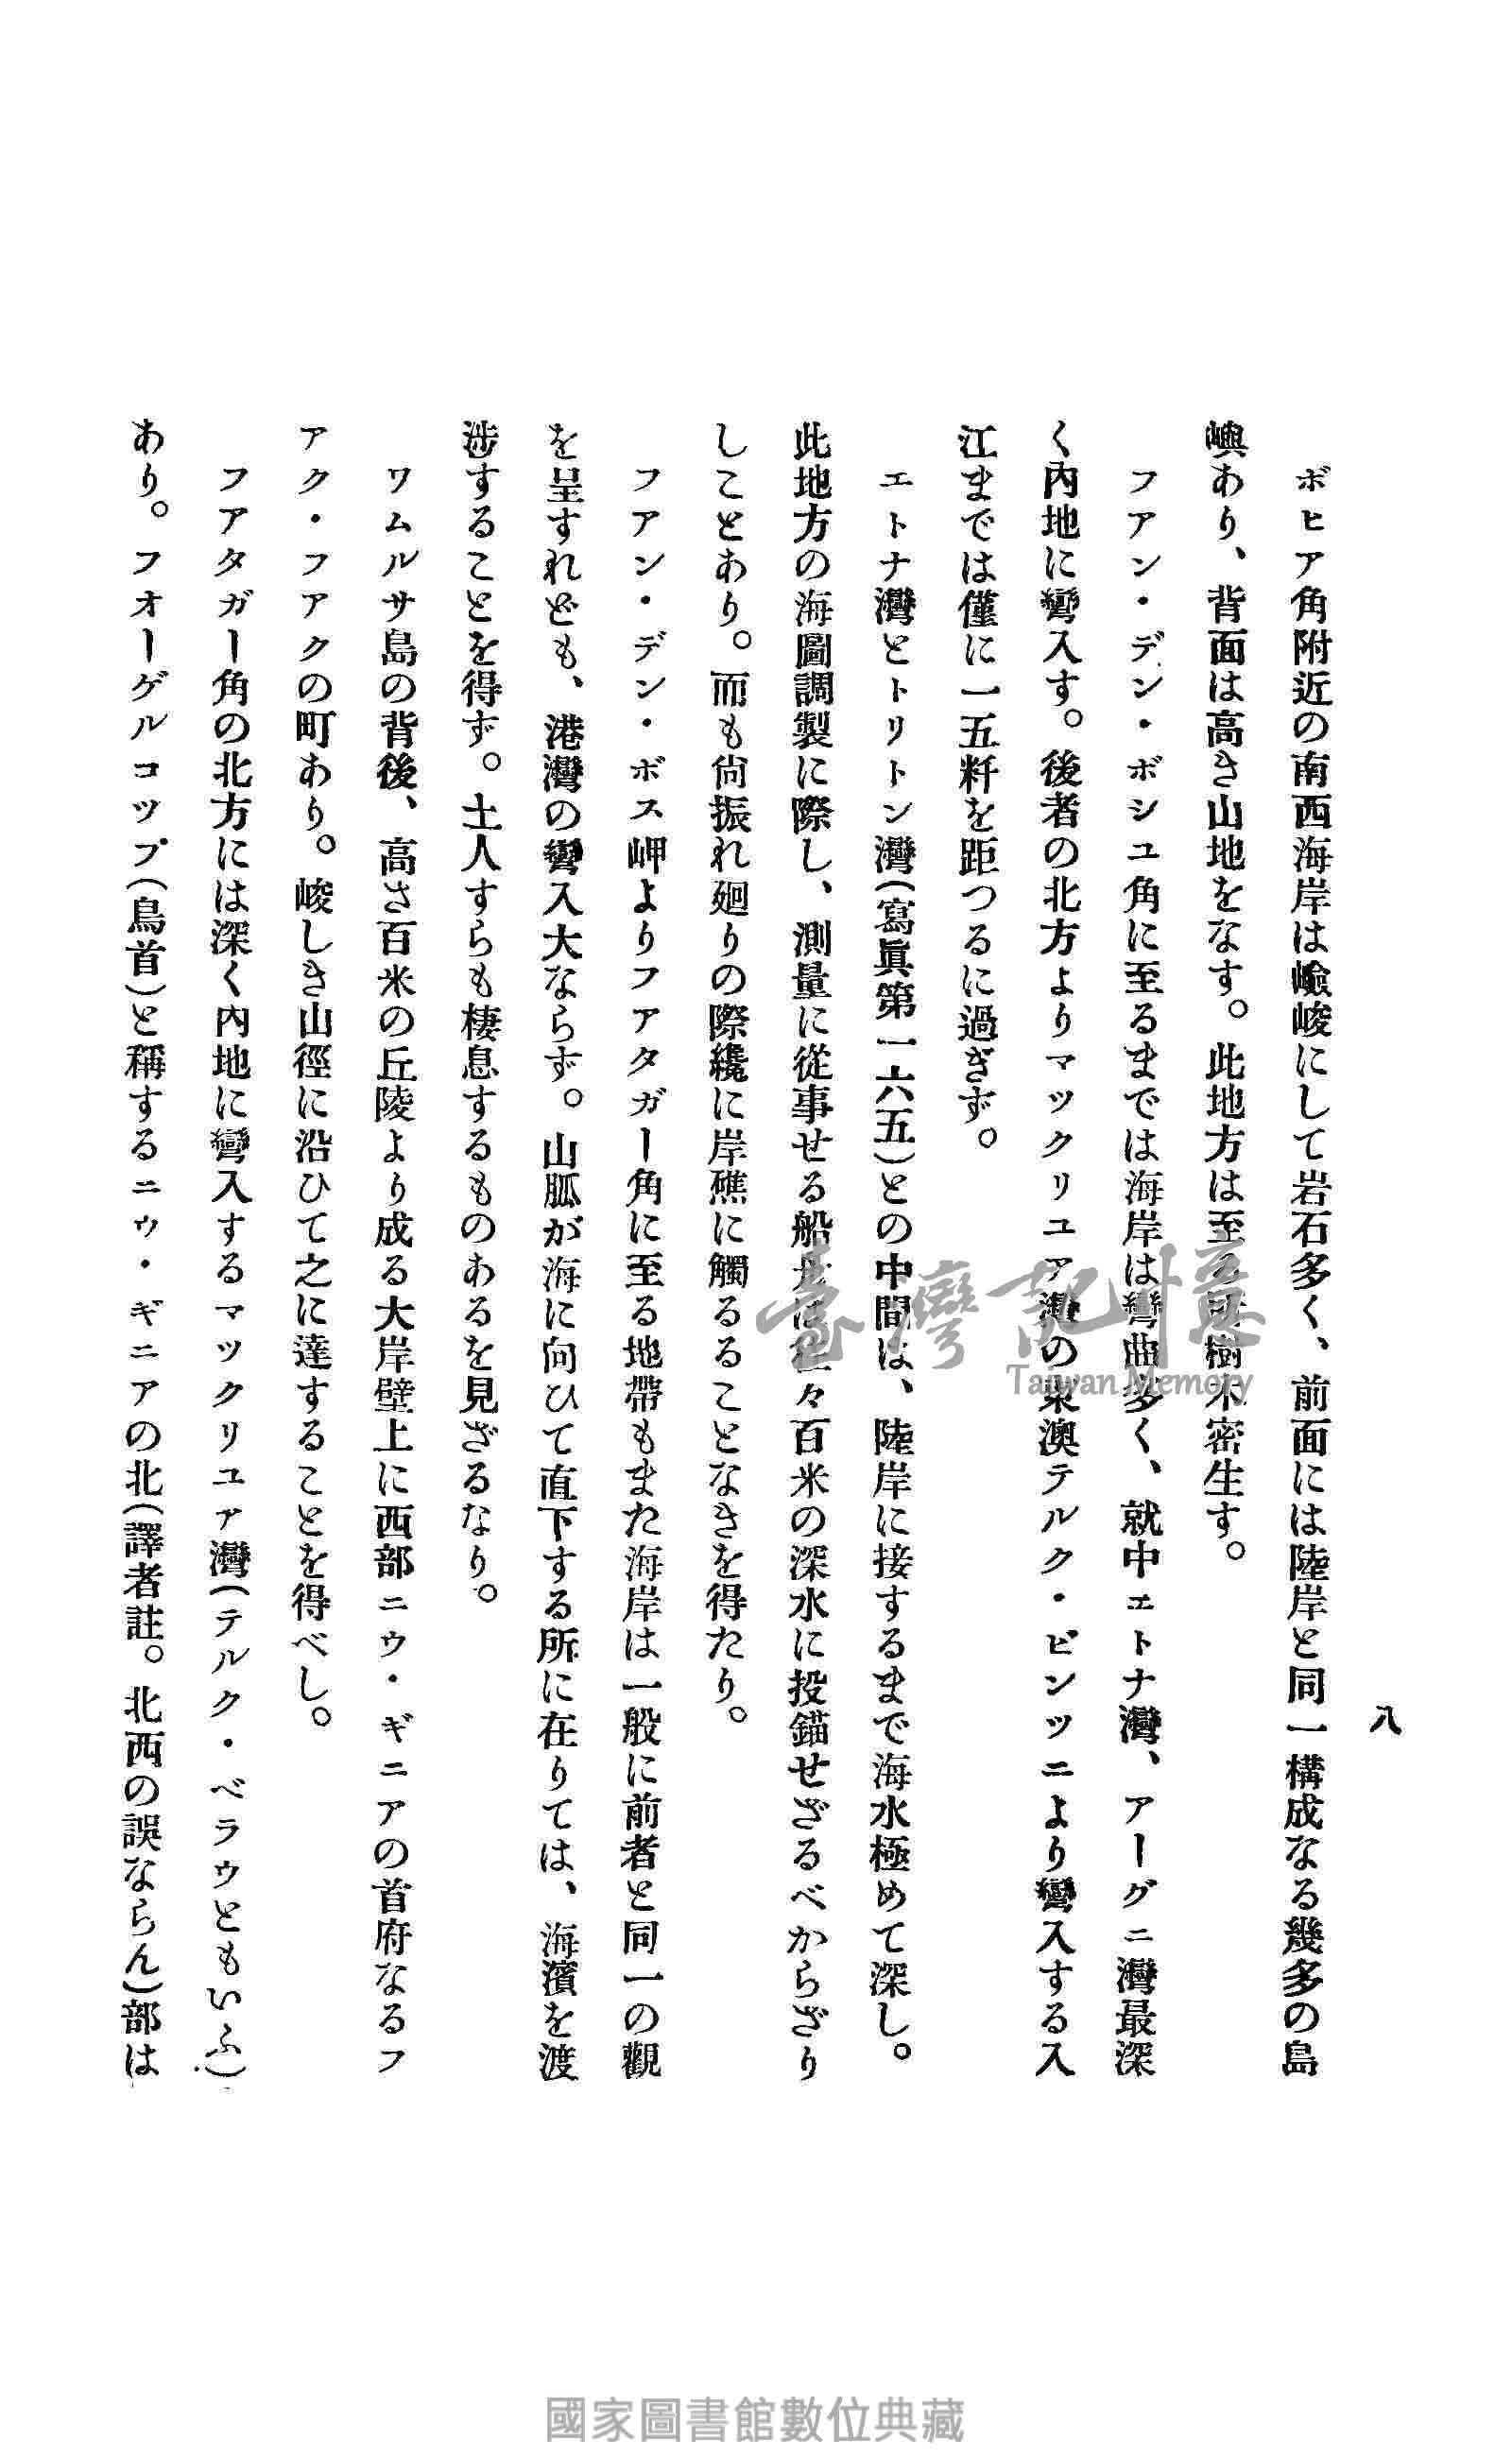 八
ボヒア角附近の南西海岸は嶮峻にして岩石多く、前面には陸岸と同一構成なる幾多の島
嶼あり、背面は高き山地をなす。此地方は至る所樹木密生す。
フアン・デン・ボシユ角に至るまでは海岸は彎曲多く、就中エトナ灣、アーグニ灣最深
く內地に彎入す。後者の北方よりマックリユア灣の東澳テルク・ビンツニより彎入する入
江までは僅に一五粁を距つるに過ぎず。
エトナ灣とトリトン灣(寫眞第一六五)との中間は、陸岸に接するまで海水極めて深し。
此地方の海圖調製に際し、測量に從事せる船舶は往々百米の深水に投錨せざるべからざり
しことあり。而も尙振れ廻りの際纔に岸礁に觸るることなきを得たり。
フアン・デン・ボス岬よりフアタガー角に至る地帶もまた海岸は一般に前者と同一の觀
を呈すれども、港灣の彎入大ならず。山脈が海に向ひて直下する所に在りては、海濱を渡
涉することを得ず。土人すらも棲息するものあるを見ざるなり。
ワムルサ島の背後、高さ百米の丘陵より成る大岸壁上に西部ニウ・ギニアの首府なるフ
アク・フアクの町あり。峻しき山徑に沿ひて之に達することを得べし。
フアタガー角の北方には深く內地に彎入するマックリユア灣(テルク・ベラウともいふ)
あり。フオーゲルコップ(鳥首)と稱するニウ・ギニアの北(譯者註。北西の誤ならん)部は
臺灣記憶
Taiwan Memory
國家圖書館數位典藏